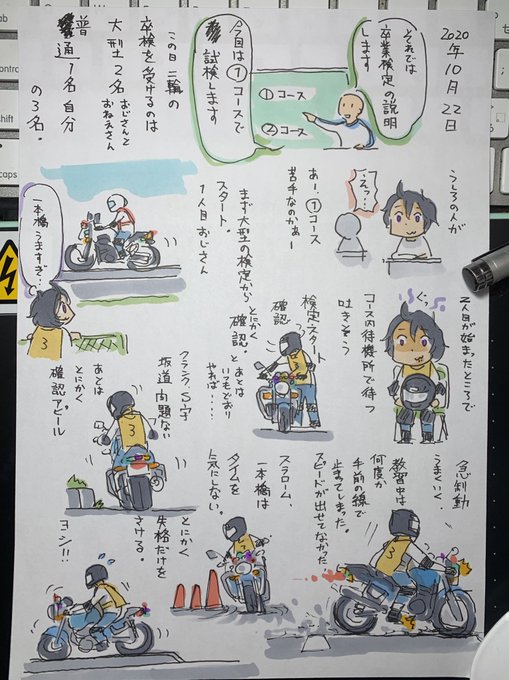 2020
年10月
22日
それでは
卒業検定の説明
します
①コース
②コース
今日は①コースで
試検します
この日二輪の
卒検を受けるのは
大型2名おじさんと
おねえさん
普通1名自分
の3名。
うしろの人が
えっ…
あー、①コース
苦手なのかぁー
まず大型の検定から
スタート。
1人目おじさん
一本橋
うますぎ…
2人目が始まったところで
ぐっ
コース内待機所で待つ
吐きそう
検定スタート
確認
とにかく
確認。
あとは
いつもどおり
やれば・・・・
クランク、S字
坂道 問題ない
あとは
とにかく
確認アピール
急制動
うまくいく。
教習中は
何度か
手前の線で
止まってしまった。
スピードが出せてなかった
スラローム、
一本橋は
タイムを
気にしない。
とにかく
失格だけを
さける。
ヨシ!!
3
3
3
3